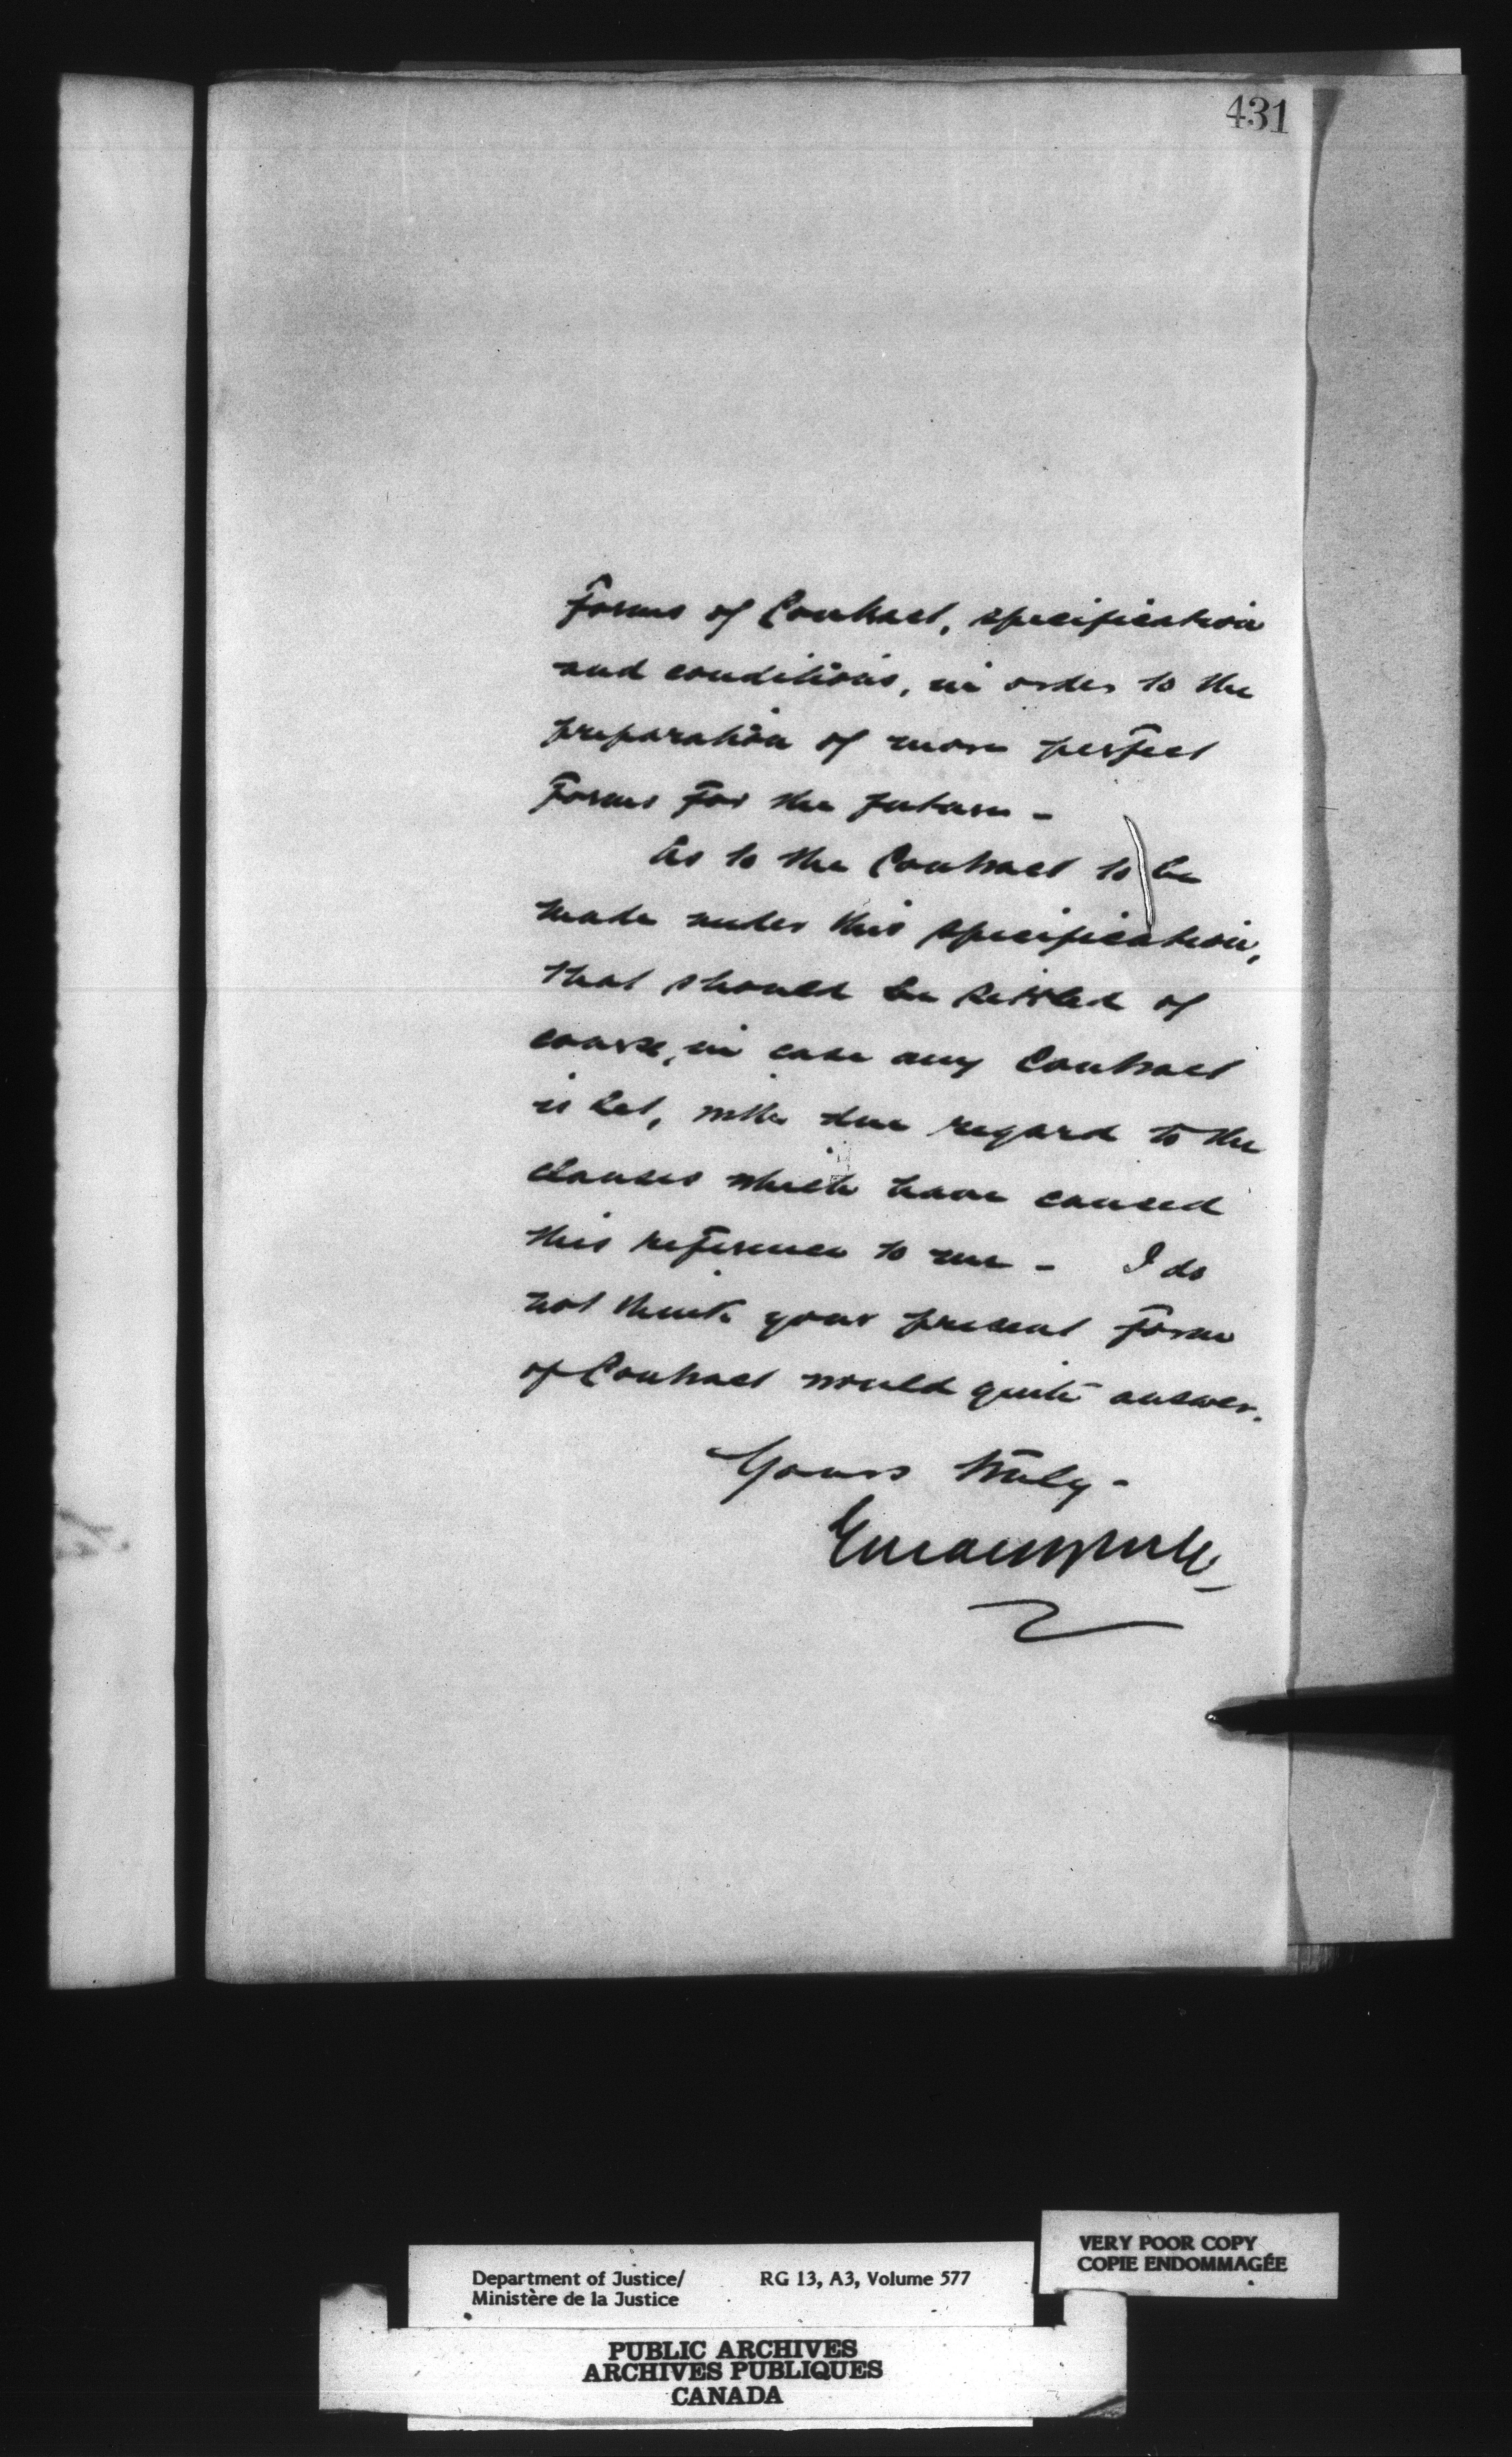 431
forms of Contract, specification
and conditions, in order to the
preparation of more perfect
forms for the future -
As to the Contract to be
made under this specification,
that should be settled of
course, in case any Contract
is let, with due regard to the
clauses which have caused
this reference to me - I do
not think your present form
of Contract would quite answer.
Yours truly -
VERY POOR COPY
COPIE ENDOMMAGÉE
Department of Justice/ RG 13, A3, Volume 577
Ministère de la Justice
PUBLIC ARCHIVES
ARCHIVES PUBLIQUES
CANADA